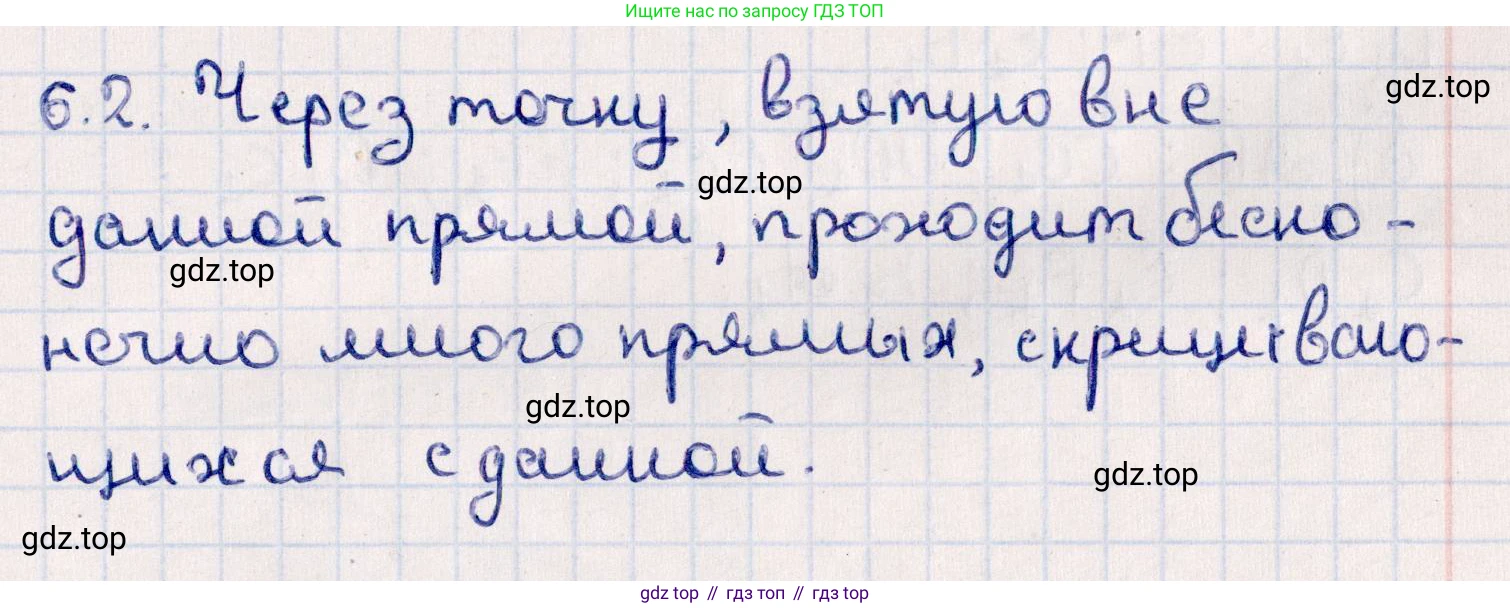 Ищите нас по запросу ГДЗ ТОП
6.2. Через точку, взятую вне
gdz.top
данной прямой, проходит беско-
gdz.top
gdz.top
нечно много прямых, скрещиваю-
gdz.top
щихся с данной.
gdz.top
gdz.top
gdz top // гдз топ // гдз top